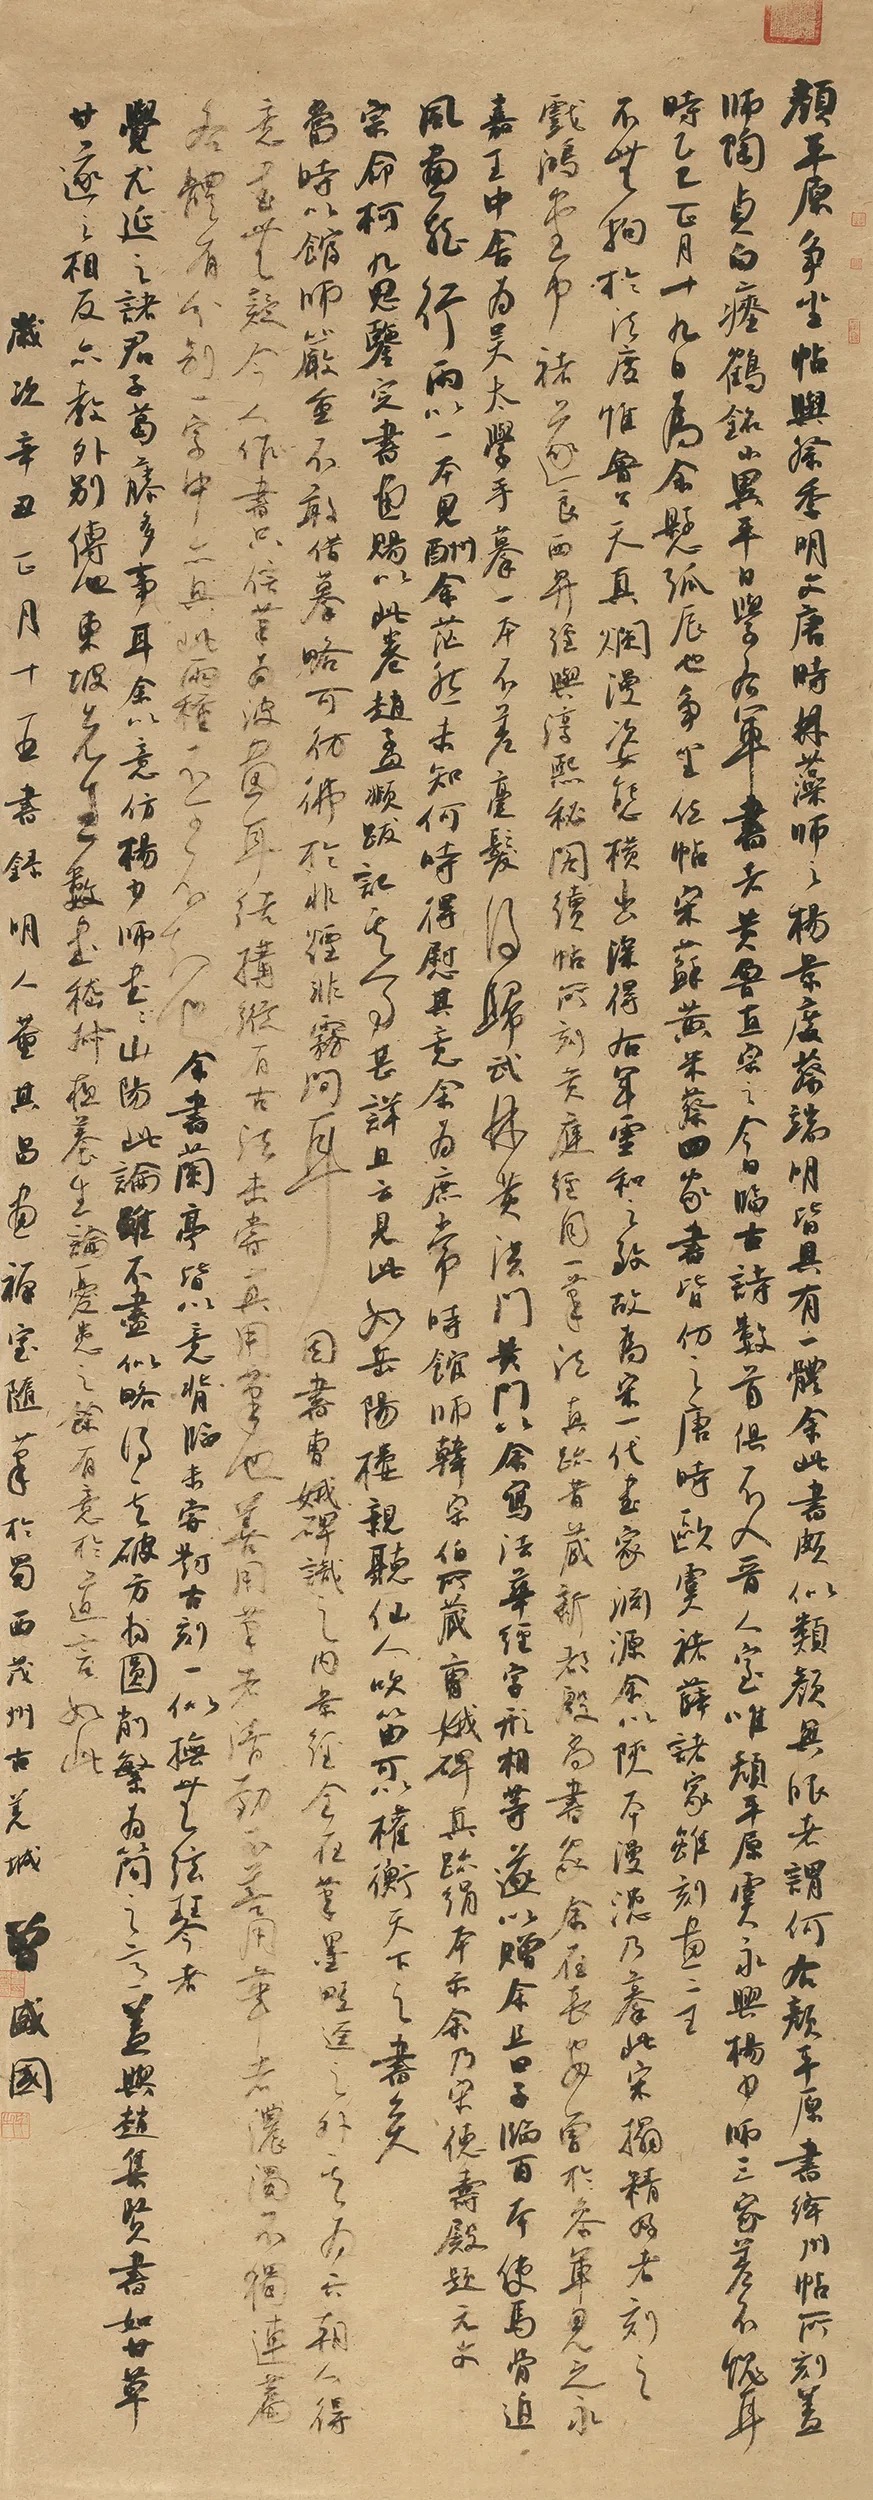 顏平原爭坐帖與祭季明文唐時林藻師之楊景度蔡端明皆具有一體余此書頗似類顏具眼者謂何右顏平原書絳州帖所刻蓋
師陶貞白瘞鶴銘小異平日學右軍書者黃魯直宗之今日臨古詩數首俱不入晉人室唯顏平原虞永興楊少師三家差不愧耳
時乙巳正月十九日為余懸弧辰也爭坐位帖宋蘇黃米蔡四家書皆仿之唐時歐虞褚薛諸家雖刻畫二王
不無拘於法度惟魯公天真爛漫姿態橫出深得右軍靈和之致故為宋一代書家淵源余以陝本漫漶乃摹此宋搨精好者刻之
戲鴻堂中 褚遂良西昇經與淳熙秘閣續帖所刻黃庭經同一筆法真跡昔藏新都殷尚書家余在長安曾於參軍見之永
嘉王中舍為吳太學手摹一本不差毫髮得歸武林黃洪門黃門以余寫法華經字形相等遂以贈余且曰子臨百本使馬骨追
風畫龍行雨以一本見酬余茫然未知何時得慰其意余為庶常時館師韓宗伯所藏曹娥碑真跡絹本示余乃宋德壽殿題元文
宗命柯九思鑒定書畫賜以此卷趙孟頫跋記其事甚詳且云見此如岳陽樓親聽仙人吹笛可以權衡天下之書矣
當時以館師嚴重不敢借摹略可彷彿於非煙非霧間耳 因書曹娥碑識之內景經全在筆墨畦逕之外其為六朝人得
意書無疑今人作書只信筆為波畫耳結構縱有古法未嘗真用筆也善用筆者清勁不善用筆者濃濁不獨連篇
各體有分別一字中亦具此兩種 余書蘭亭皆以意背臨未嘗對古刻一似撫無弦琴者
覺尤延之諸君子葛藤多事耳余以意仿楊少師書書山陽此論雖不盡似略得其破方為圓削繁為簡之意蓋與趙集賢書如甘草
甘遂之相反亦教外別傳也東坡先生數書嵇叔夜養生論憂患之餘有意於道言如此
歲次辛丑正月十五書錄明人董其昌畫禪室隨筆於蜀西茂州古羌城 曾盛國